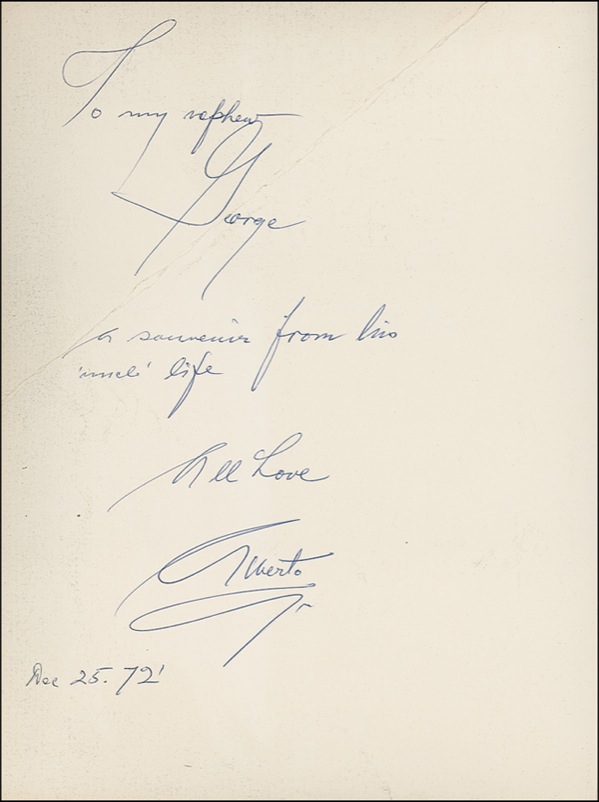 To my nephew
George
a souvenir from his
'uncle' life
All Love
Alberto
Dec 25. 72'